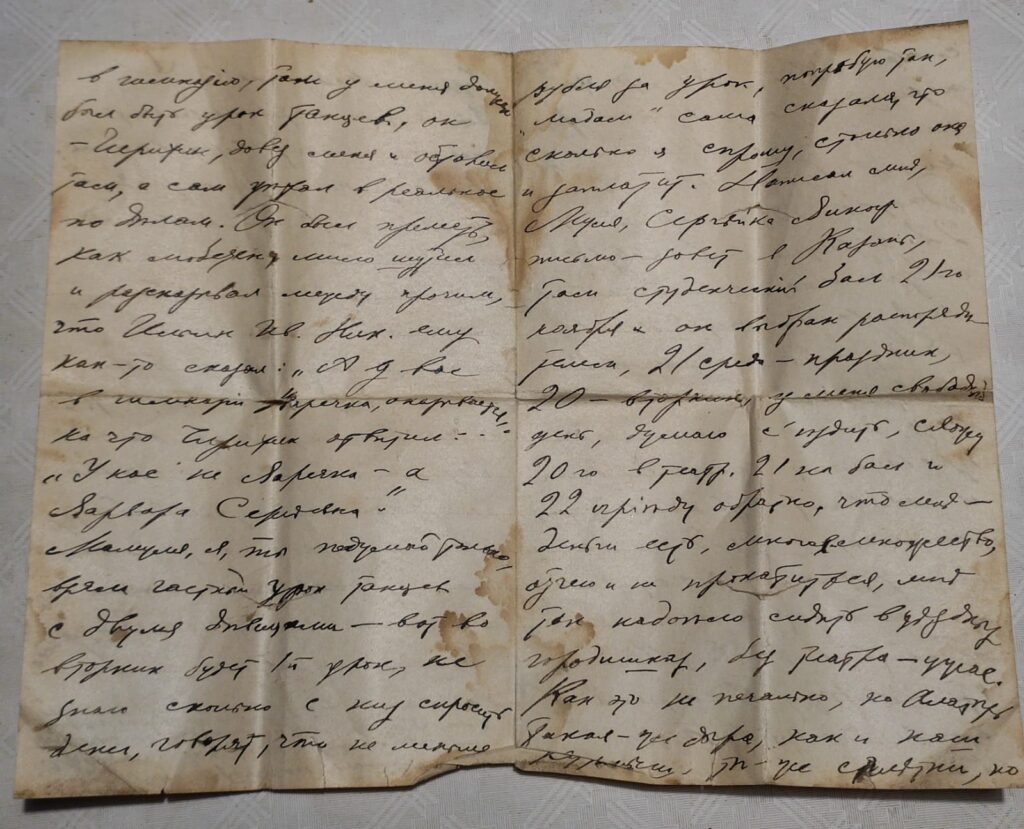 в гимназiю, там у меня должен
был быть урок танцев, он
- Чирихин, довез меня и оставил
там, а сам уехал в реальное
по делам. Он был прелесть,
как любезен, мило шутил
и разсказывал между прочим,
что Ильин Ив. Ник. ему
как-то сказал: „А у вас
в гимназiи Варечка, оказывается",
на что Чирихин ответил:
„У нас не Варечка - а
Варвара Сергеевна."
Мамуля, я, ты подумай только,
взяла частный урок танцев
с двумя девицами - вот во
вторник будет 1й урок, не
знаю сколько с них спросить
денег, говорят, что не меньше
рубля за урок, попробую так,
„мадам" сама сказала, что
сколько я спрошу, столько она
и заплатит. Написал мне,
Муля, Сергейка
письмо - зовет в Казань,
там студенческiй бал 21го
ноября и он выбран распоряди-
телем, 21 среда - праздник,
20 - вторник, у меня свободный
день, думаю съездить, схожу
20го в театр, 21 на бал и
22 прiеду обратно, что мне -
деньги есть, многое множество,
отчего и не прокатиться, мне
так надоело сидеть в уездном
городишке, без театра - ужас.
Как это не печально, но Алатырь
такая-же дыра, как и наш
те-же сплетни, но